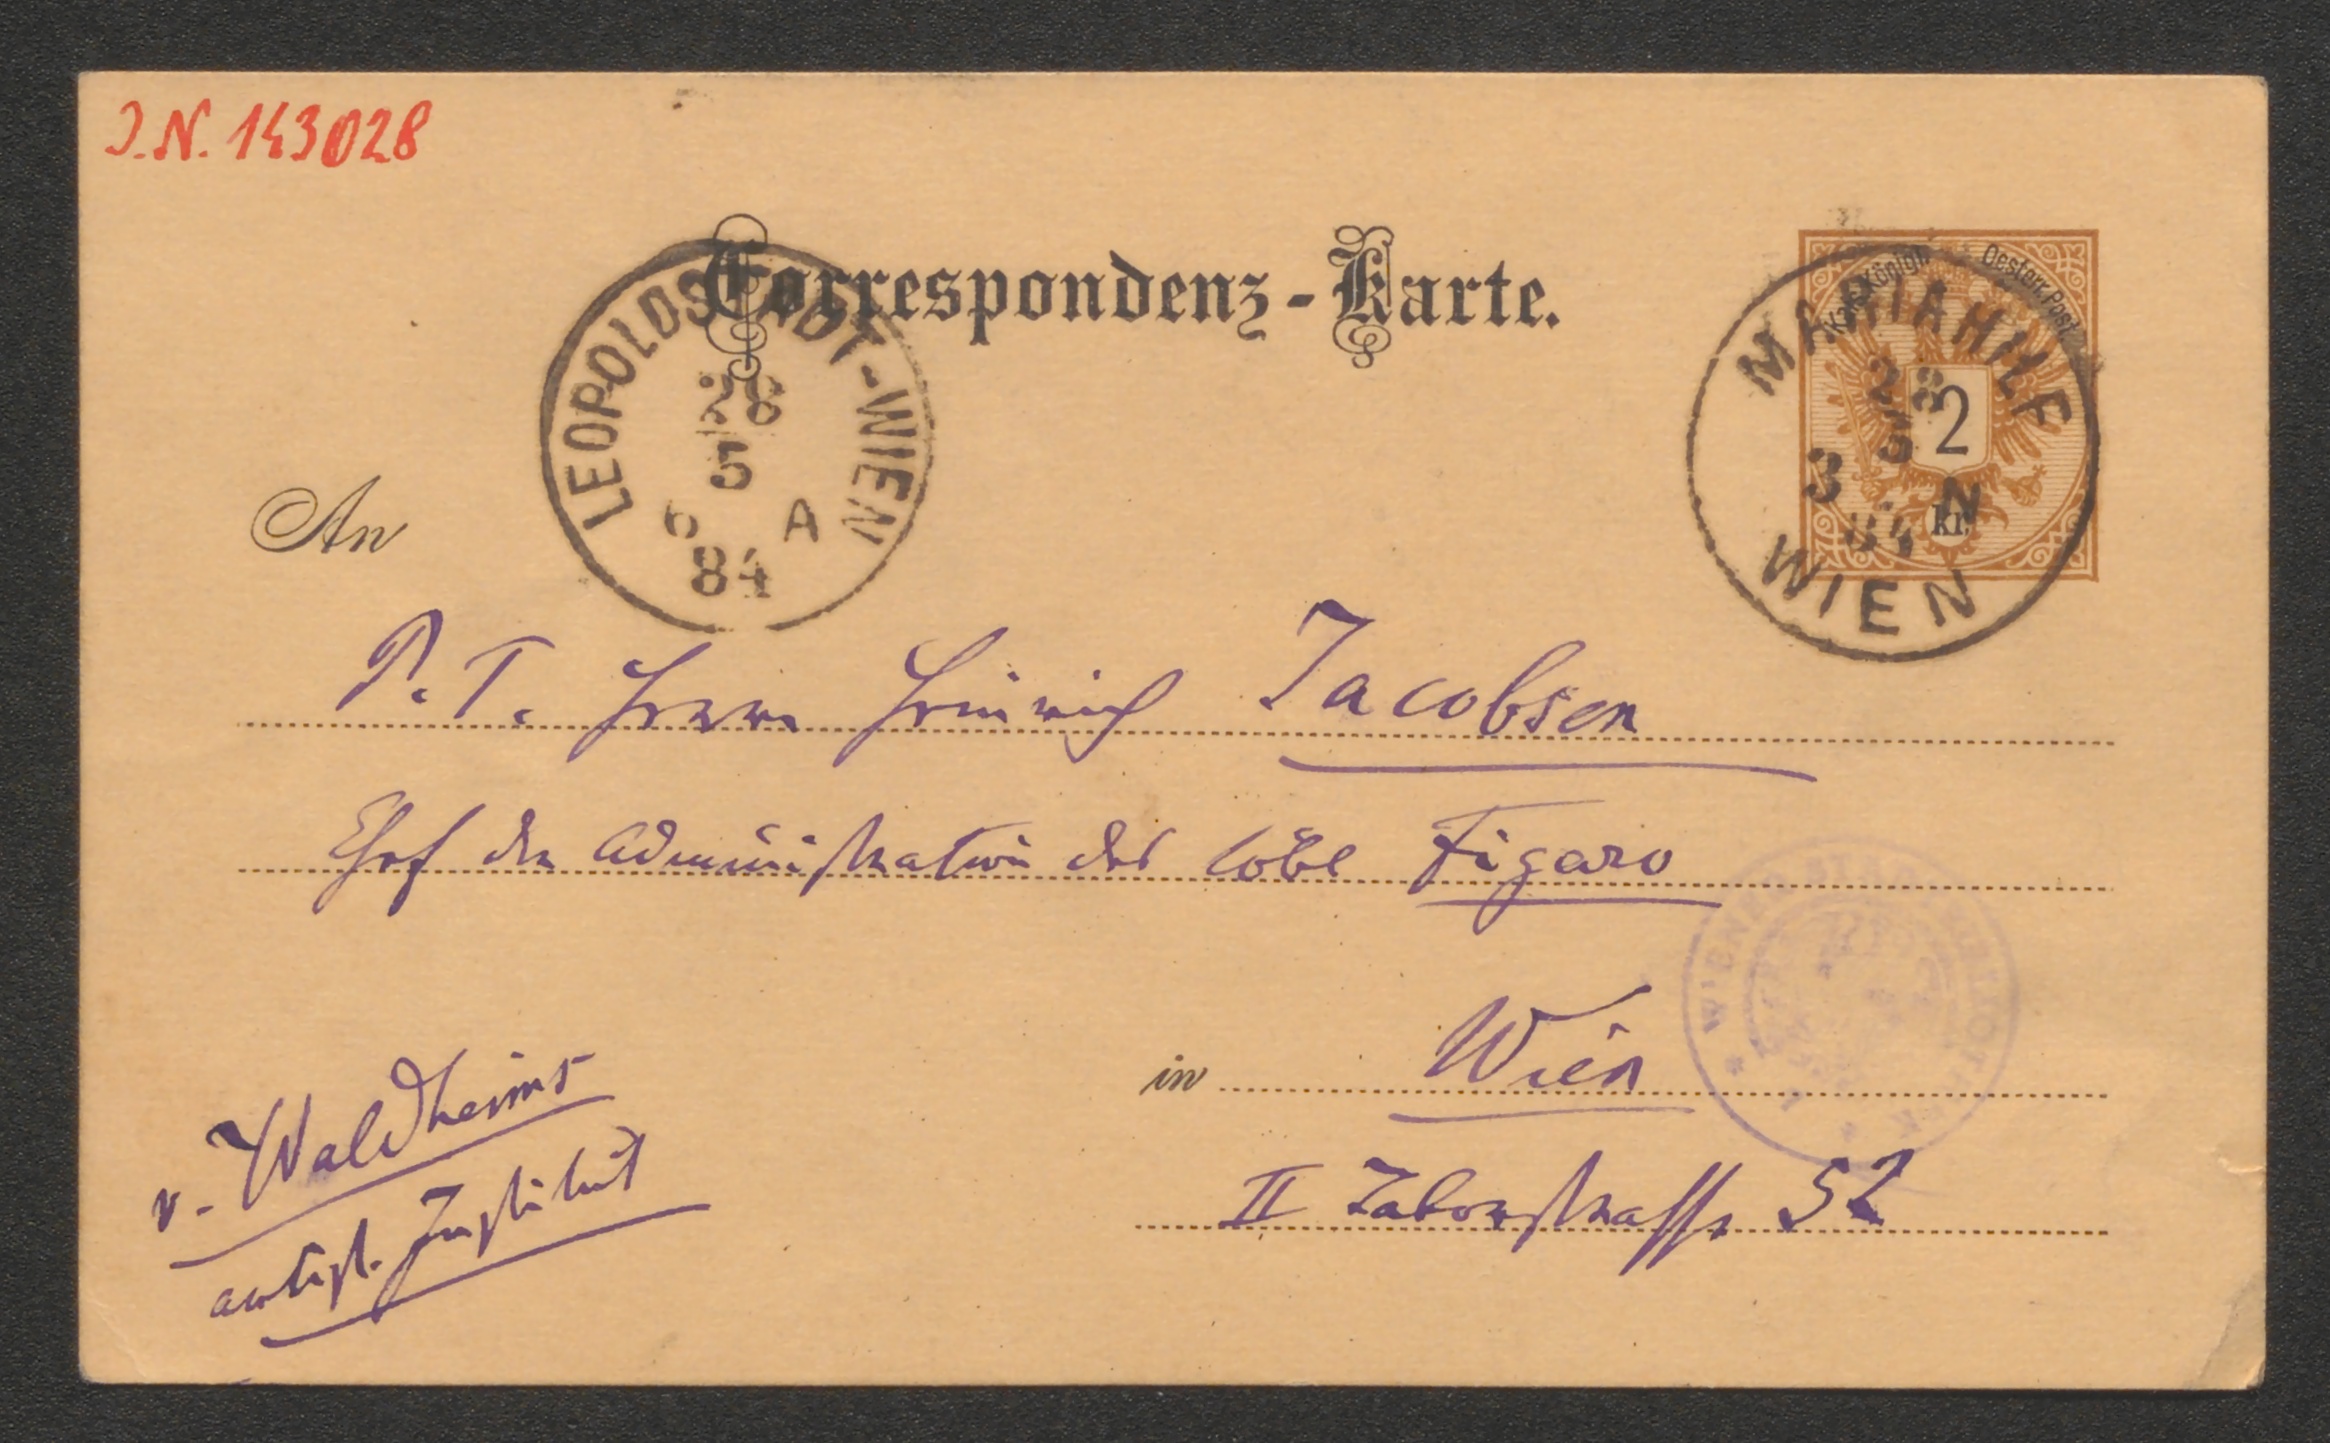 J.N. 143028
Correspondenz-Karte.
Kais. Königl. Oesterr. Post
2
kr.
MARIAHILF
28
5
3 N
84
WIEN
LEOPOLDSTADT-WIEN
28
5
6 A
84
An
P. T. Herrn Heinrich Jacobsen
Chef der Administration des löbl Figaro
in Wien
II Taborstrasse 52
v. Waldheims
artist. Institut
WIENER STADTBIBLIOTHEK